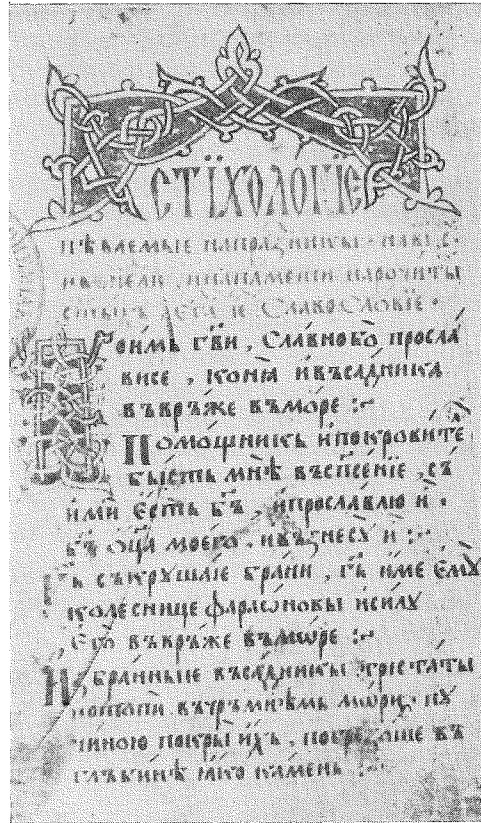 СТЇХОЛОГЇЕ
пѣваемые напразникы
Поимь гв҃и, Славнобо просла
висе, конꙗ ивъсадника
въврьже въморе :~
Помощникь ипокровите
бысть мнѣ въспсенїе, съ
ими єсть бъ, ипрославлю и.
бъ оца моего, ивъзнесу и :~
гь съкрушаїе брани, гь име ємꙋ
колесницефараѡновы исилꙋ
єго въврьже въмѡре :~
Избранные въсадникы тристаты
потопи въчръмнѣмь мори, пꙋ
чиною покры ихь, погрѧзоше въ
глꙋбинѣ ꙗко камень :~